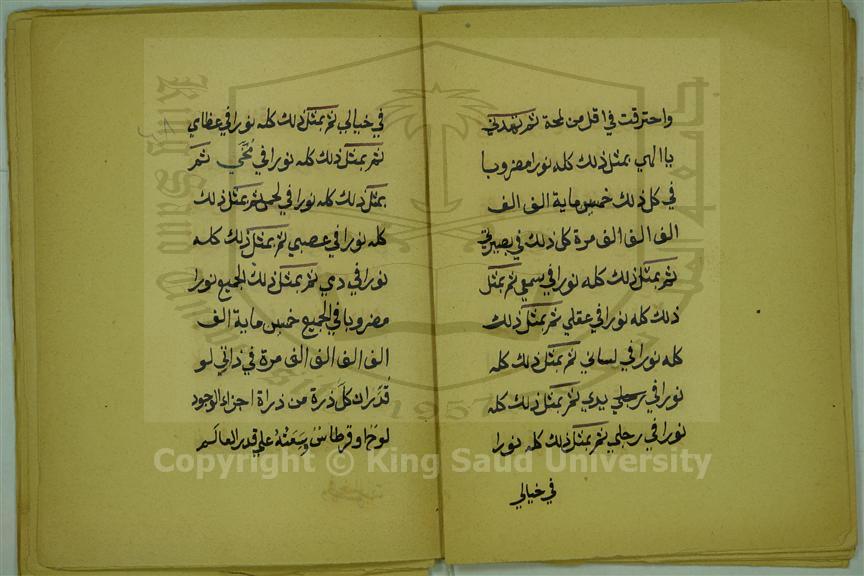 واحترقت في اقل من لمحة ثم تمدني
ياالهي بمثل ذلك كله نورا مضروبا
في كل ذلك خمس ماية الف الف
الف الف الف مرة كل ذلك في بصيرتي
ثم بمثل ذلك كله نورا في سمعي ثم بمثل
ذلك كله نورا في عقلي ثم بمثل ذلك
كله نورا في لساني ثم بمثل ذلك كله
نورا في رجلي يدي ثم بمثل ذلك كله
نورا في رجلي ثم بمثل ذلك كله نورا
في خيالي
في خيالي ثم بمثل ذلك كله نورا في عظامي
ثم بمثل ذلك كله نورا في مُخّي ثم
بمثل ذلك كله نورا في لحمي ثم بمثل ذلك
كله نورا في عصبي ثم بمثل ذلك كله
نورا في دمي ثم بمثل ذلك الجميع نورا
مضروبا في الجميع خمس ماية الف
الف الف الف الف مرة في ذاتي لو
قُدّر ان كلّ ذرة من ذراة اجزاء الوجود
لوح او قرطاس وَسِعَتْهُ علي قدر العالم
Copyright © King Saud University
1957